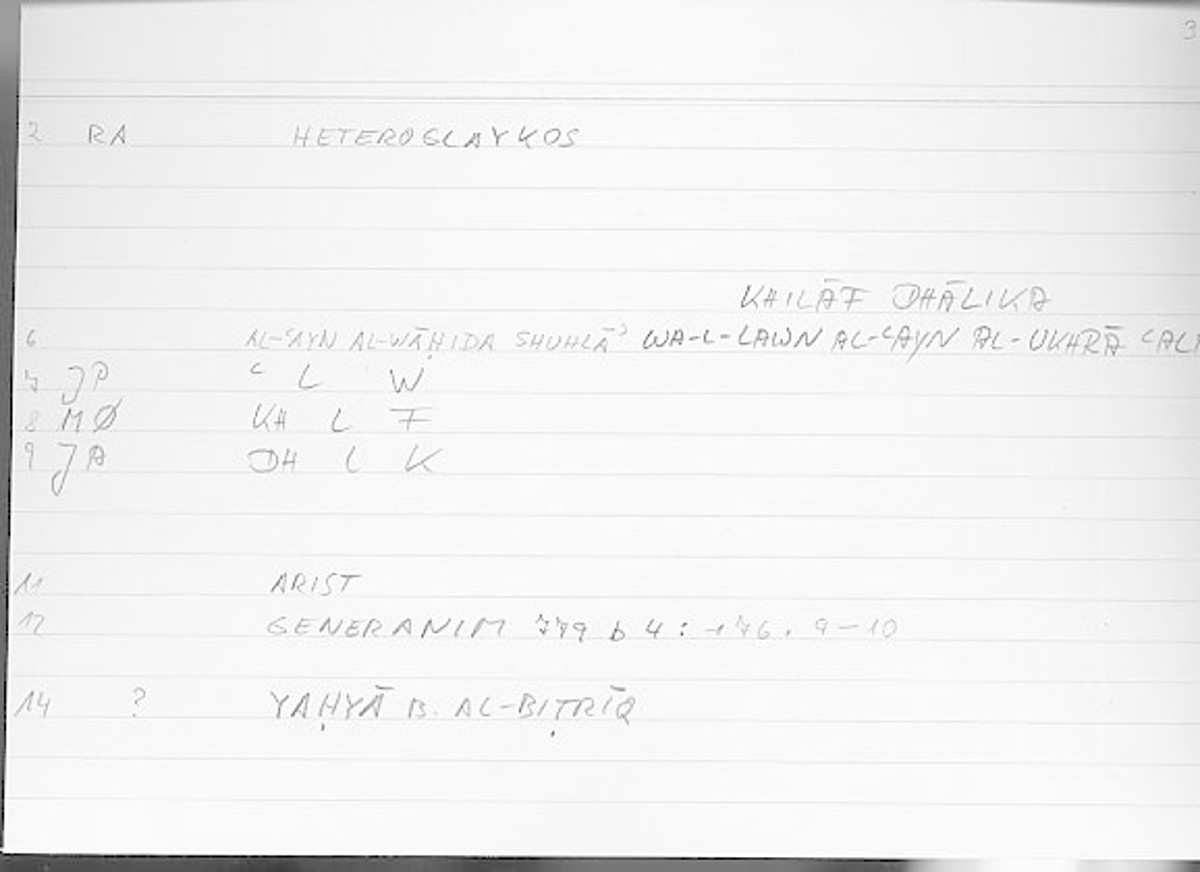 3
2 RA HETEROGLAYKOS
KHILĀF DHĀLIKA
6 AL-ʿAYN AL-WĀḤIDA SHUHLĀʾ WA-L-LAWN AL-ʿAYN AL-UKHRĀ ʿALĀ
7 JP ʿ L W
8 MØ KH L F
9 JA DH L K
11 ARIST
12 GENERANIM 779 b 4 : 176. 9-10
14 ? YAḤYĀ B. AL-BIṬRĪQ